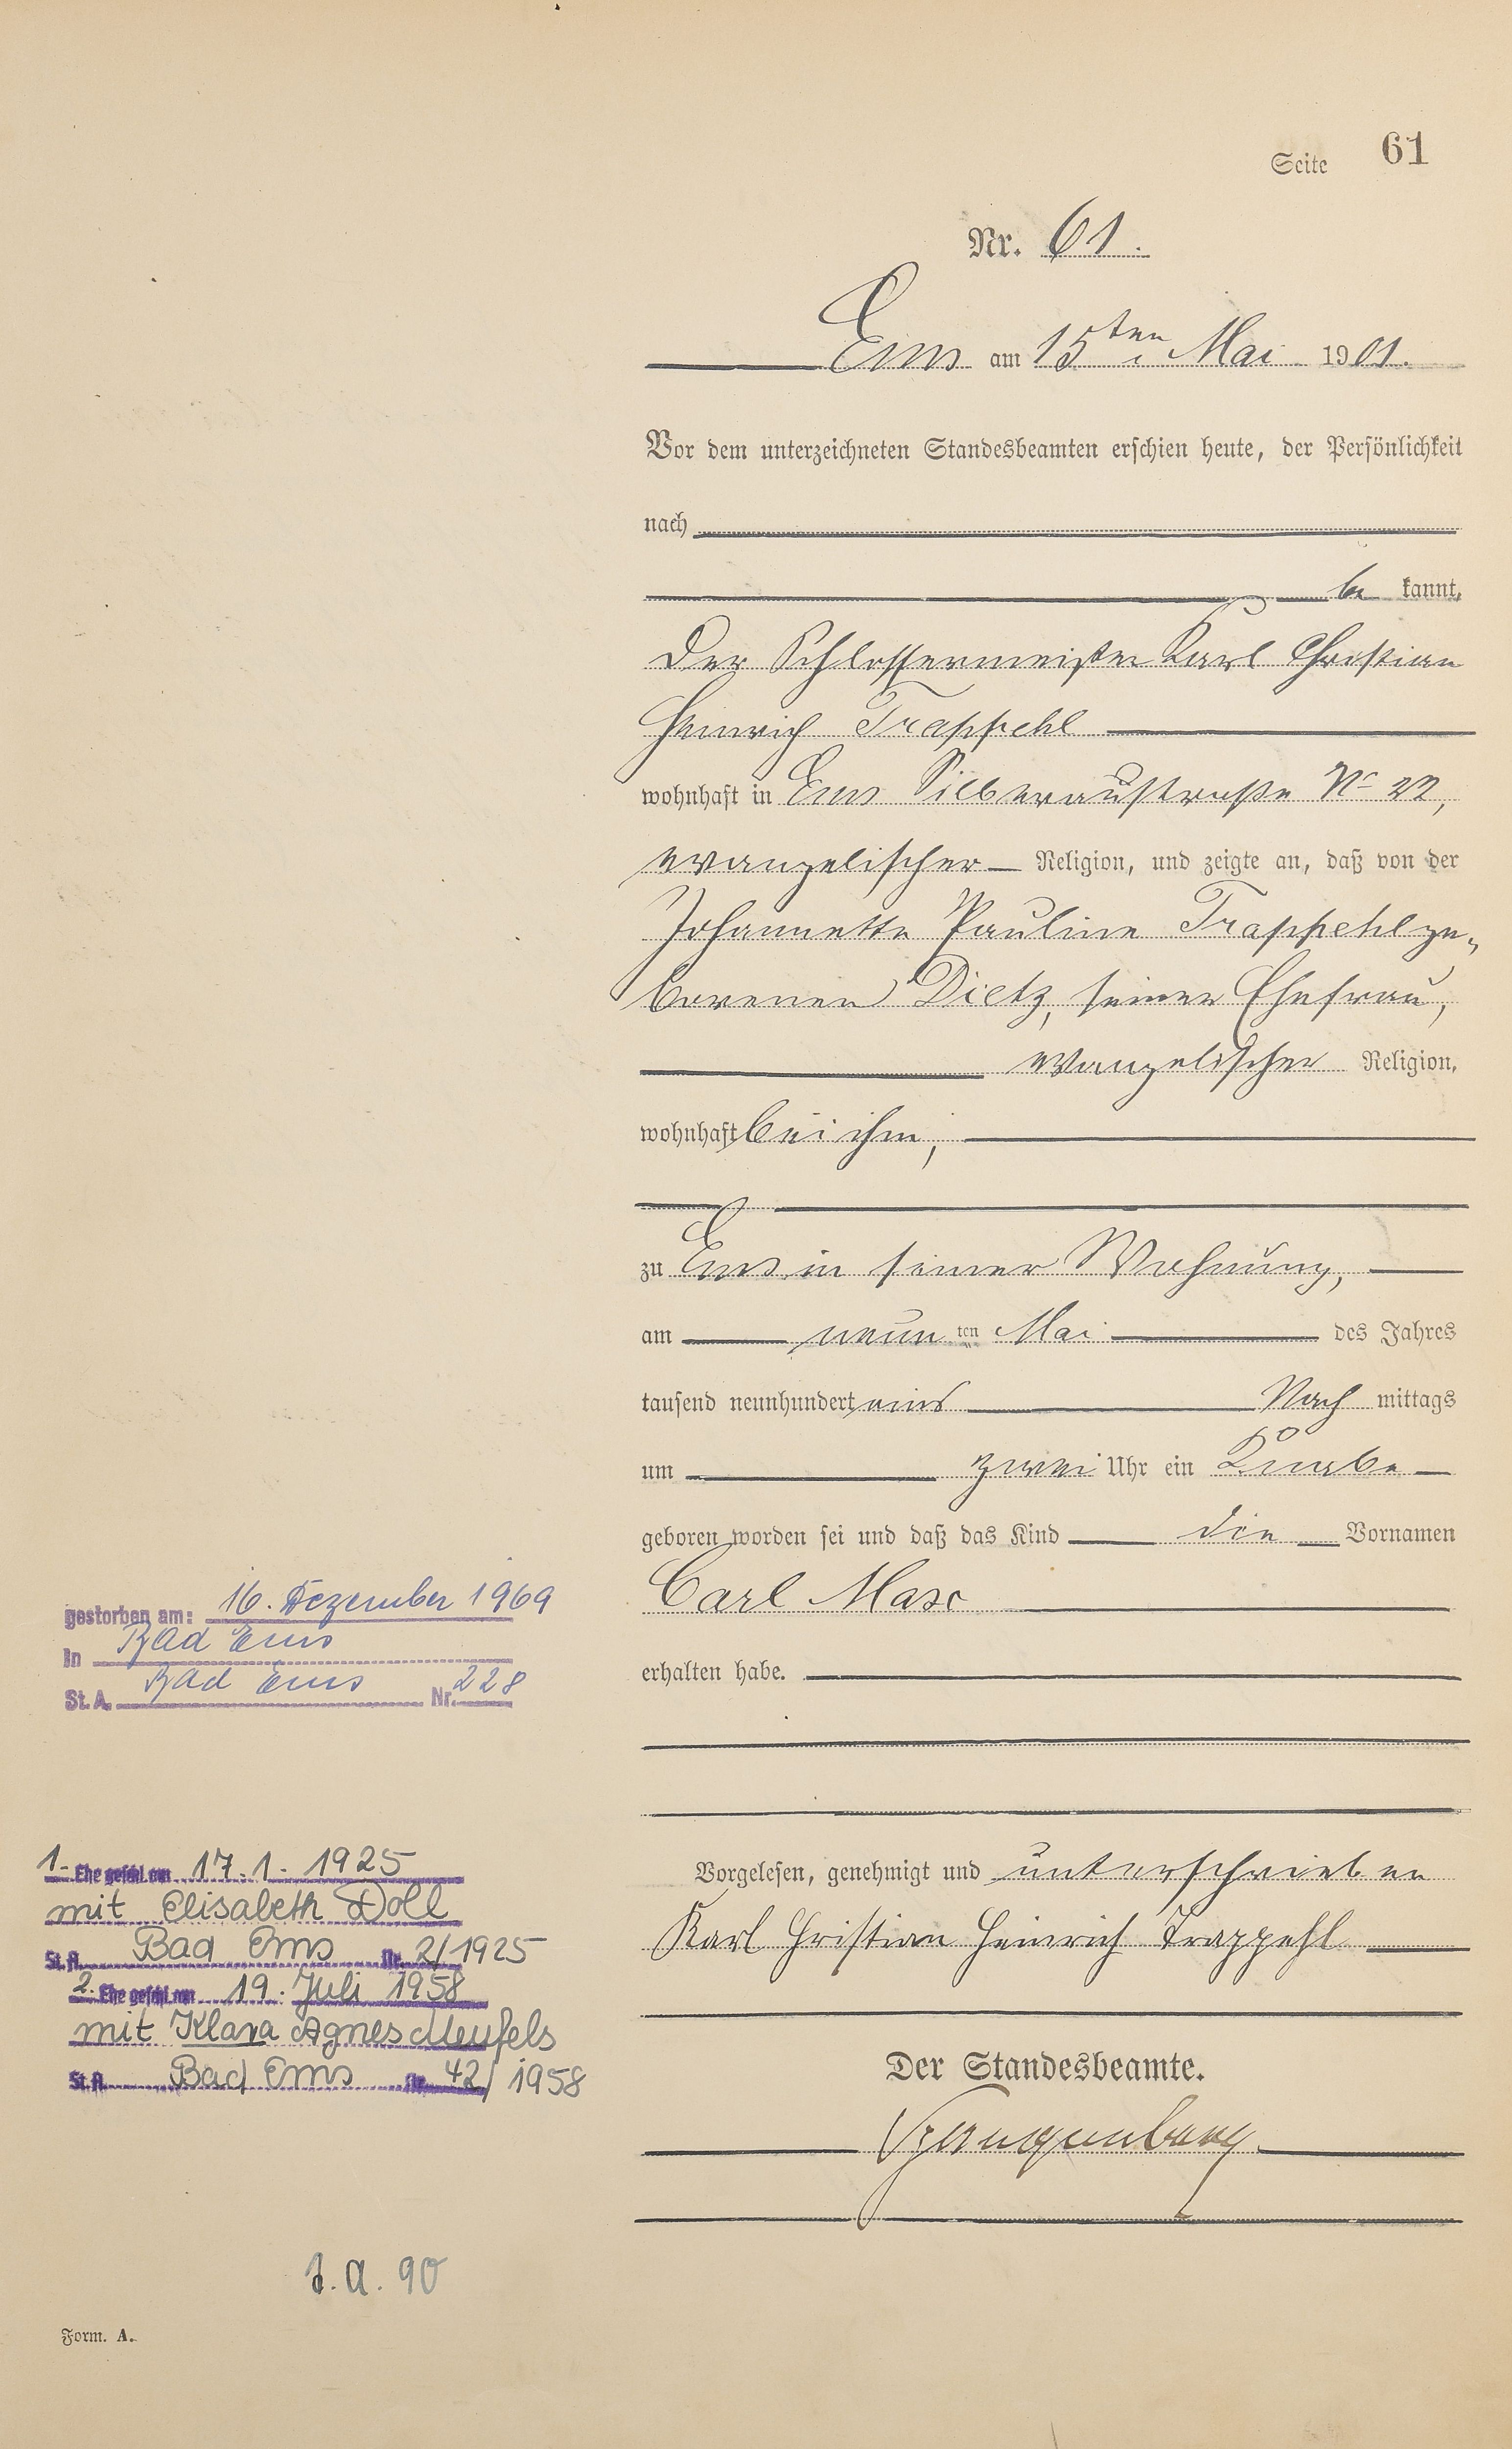 Seite 61
Nr. 61.
Ems am 15ten Mai 1901.
Vor dem unterzeichneten Standesbeamten erschien heute, der Persönlichkeit
nach
be kannt,
der Schlossermeister Karl Christian
Heinrich Trappehl
wohnhaft in Ems Silberaustraße No 22,
evangelischer Religion, und zeigte an, daß von der
Johannette Pauline Trappehl ge-
borenen Dietz, seiner Ehefrau,
evangelischer Religion,
wohnhaft bei ihm,
zu Ems in seiner Wohnung,
am neun ten Mai des Jahres
tausend neunhundert eins Nach mittags
um zwei Uhr ein Knabe
geboren worden sei und daß das Kind die Vornamen
Carl Max
erhalten habe.
Vorgelesen, genehmigt und unterschrieben
Karl Christian Heinrich Trappehl
Der Standesbeamte.
gestorben am: 16. Dezember 1969
in Bad Ems
St. A. Bad Ems Nr. 228
1. Ehe geschl. am 17.1.1925
mit Elisabeth Doll
St. A. Bad Ems Nr. 2/1925
2. Ehe geschl. am 19. Juli 1958
mit Klara Agnes Meufels
St. A. Bad Ems Nr. 42/1958
Form. A.